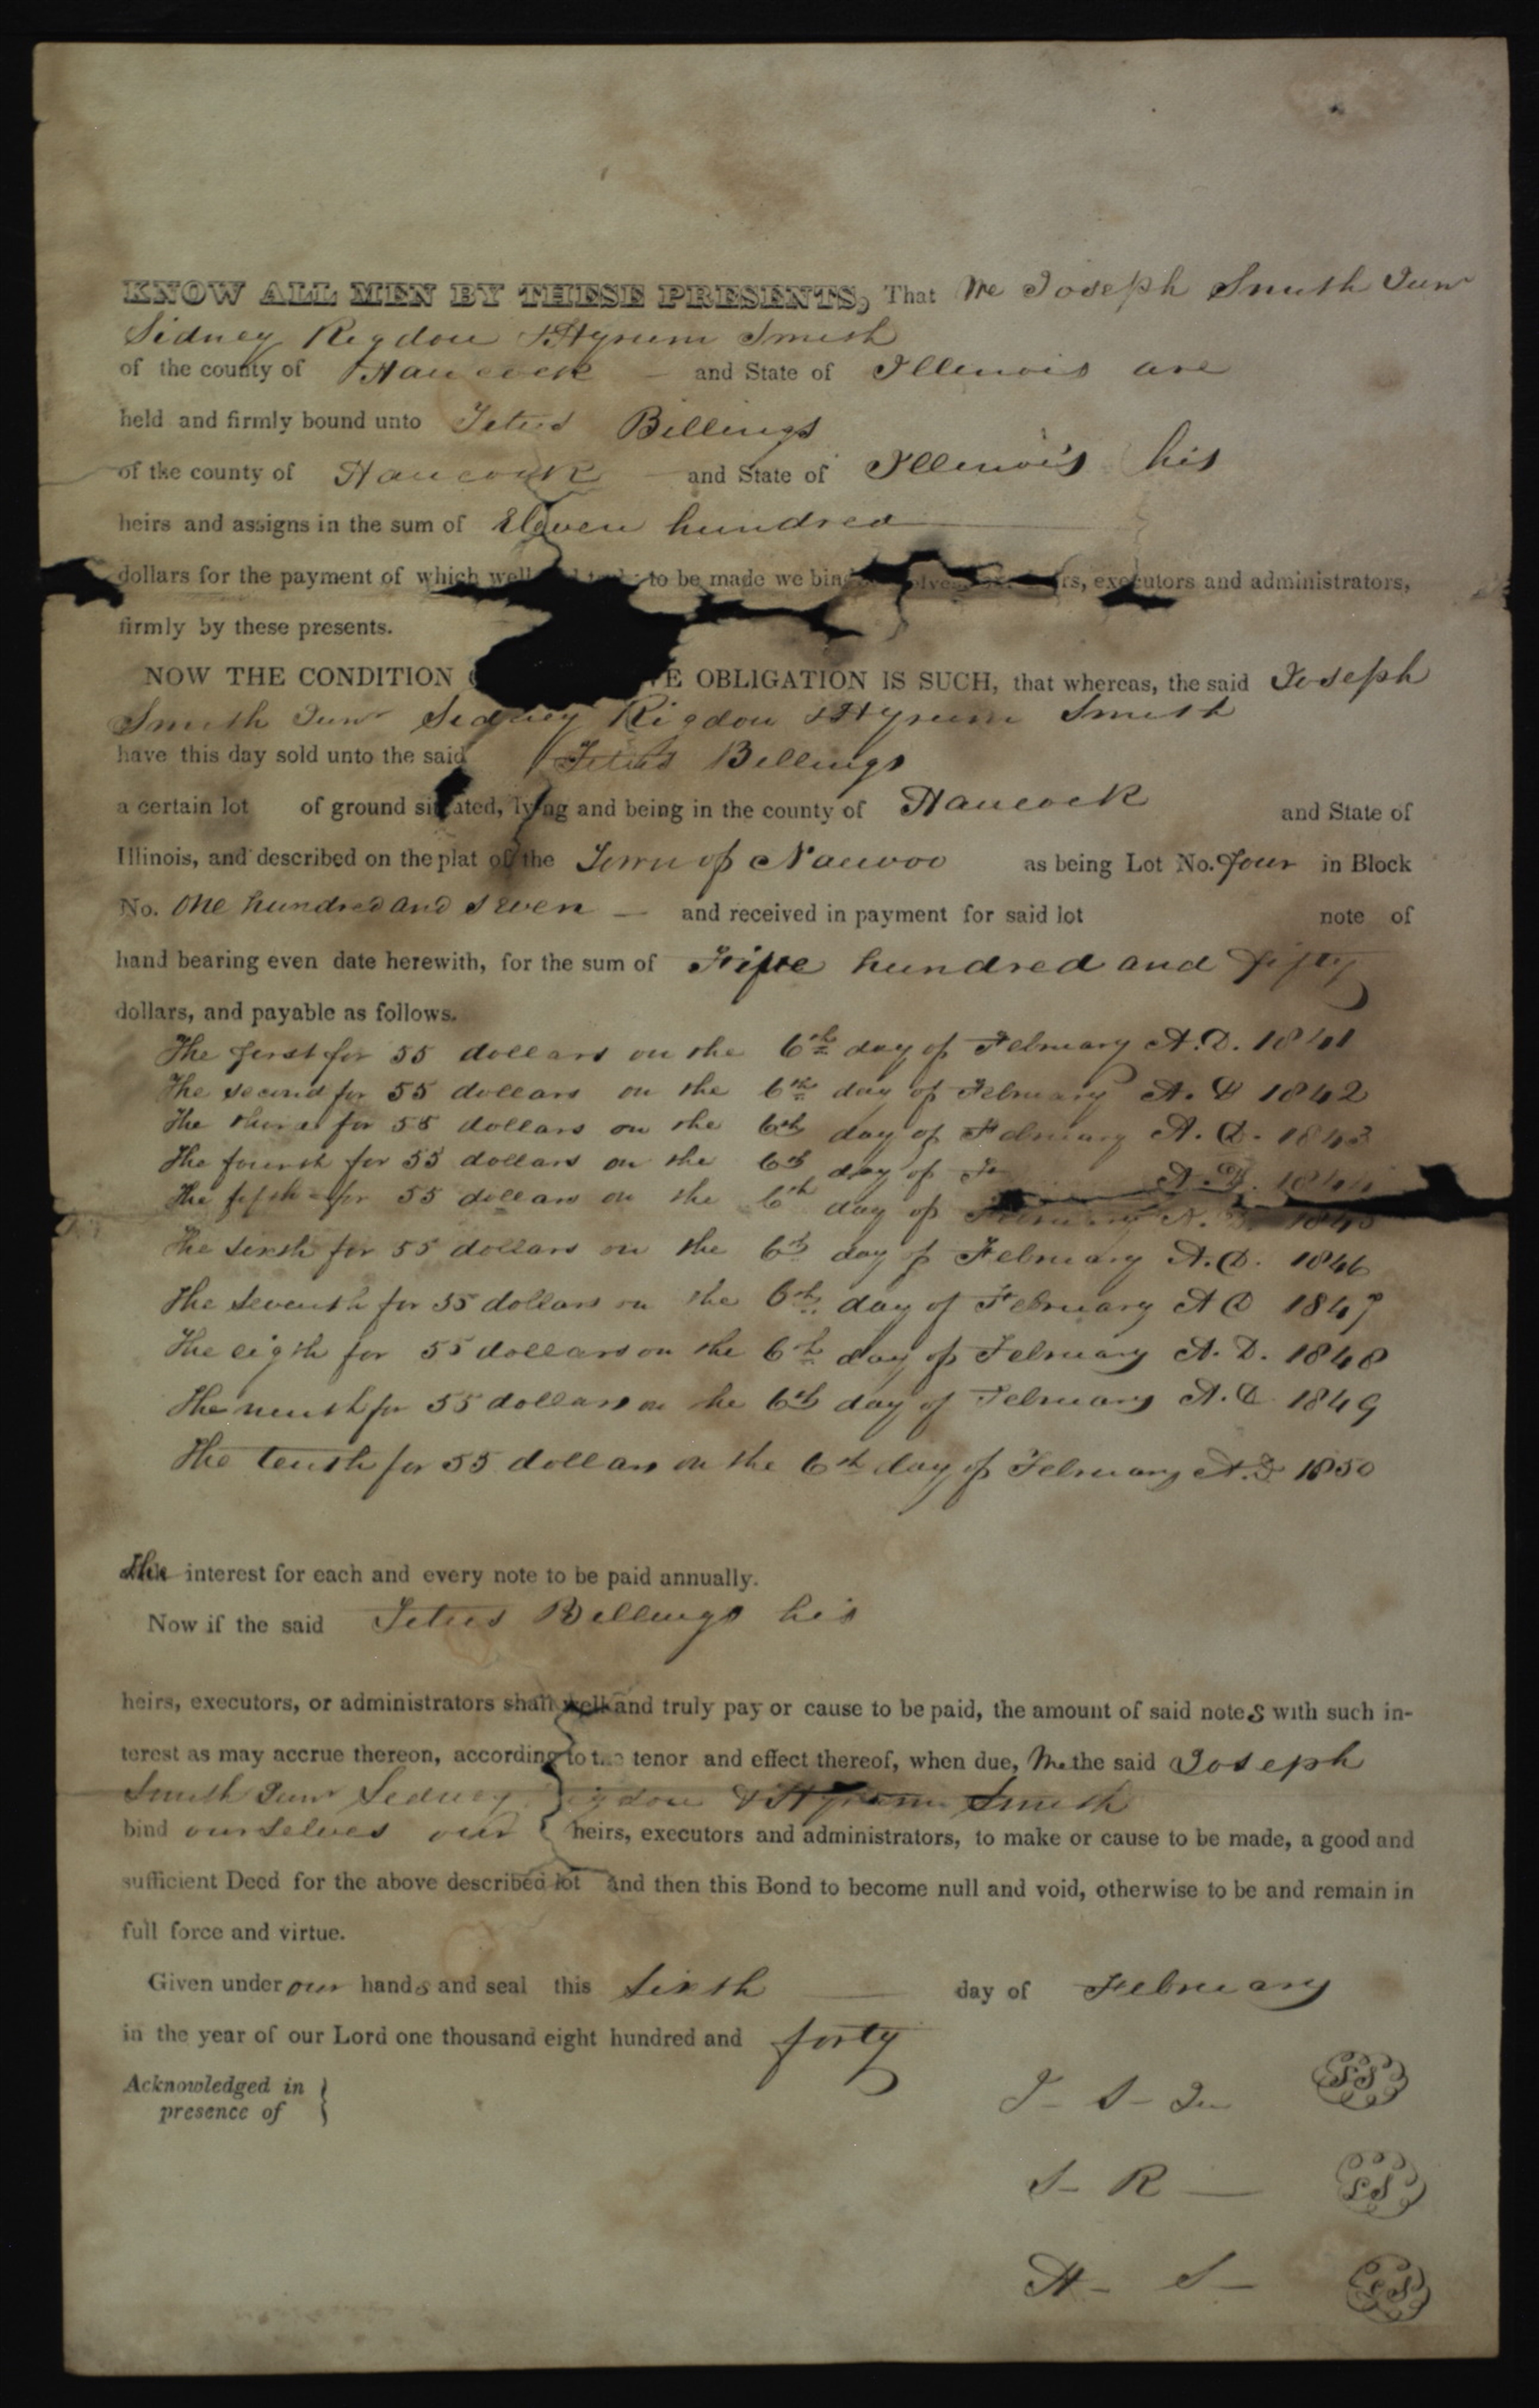 KNOW ALL MEN BY THESE PRESENTS, That We Joseph Smith Junr
Sidney Rigdon & Hyrum Smith
of the county of Hancock — and State of Illinois are
held and firmly bound unto Titus Billings
of the county of Hancock — and State of Illinois his
heirs and assigns in the sum of Eleven hundred
dollars for the payment of which well to be made we bind executors and administrators,
firmly by these presents.
NOW THE CONDITION OBLIGATION IS SUCH, that whereas, the said Joseph
Smith Junr Sidney Rigdon & Hyrum Smith
have this day sold unto the said Titus Billings
a certain lot of ground situated, lying and being in the county of Hancock and State of
Illinois, and described on the plat of the Town of Nauvoo as being Lot No. four in Block
No. One hundred and seven — and received in payment for said lot note of
hand bearing even date herewith, for the sum of Five hundred and fifty
dollars, and payable as follows.
The first for 55 dollars on the 6th day of February A.D. 1841
The second for 55 dollars on the 6th day of February A. D 1842
The third for 55 dollars on the 6th day of February A. D. 1843
The fourth for 55 dollars on the 6th day of Fe A. D. 1844
The fifth for 55 dollars on the 6th day of February A. D. 1845
The sixth for 55 dollars on the 6th day of February A.D. 1846
The seventh for 55 dollars on the 6th day of February A D 1847
The eigth for 55 dollars on the 6th day of February A. D. 1848
The ninth for 55 dollars on the 6th day of February A. D 1849
The tenth for 55 dollars on the 6th day of February A.D 1850
The interest for each and every note to be paid annually.
Now if the said Titus Billings his
heirs, executors, or administrators shall well and truly pay or cause to be paid, the amount of said notes with such in-
terest as may accrue thereon, according to the tenor and effect thereof, when due, We the said Joseph
Smith Junr Sidney Rigdon & Hyrum Smith
bind ourselves our heirs, executors and administrators, to make or cause to be made, a good and
sufficient Deed for the above described lot and then this Bond to become null and void, otherwise to be and remain in
full force and virtue.
Given under our hands and seal this sixth — day of February
in the year of our Lord one thousand eight hundred and forty
Acknowledged in
presence of }
J- S- Jun LS
S- R — LS
H- S- LS